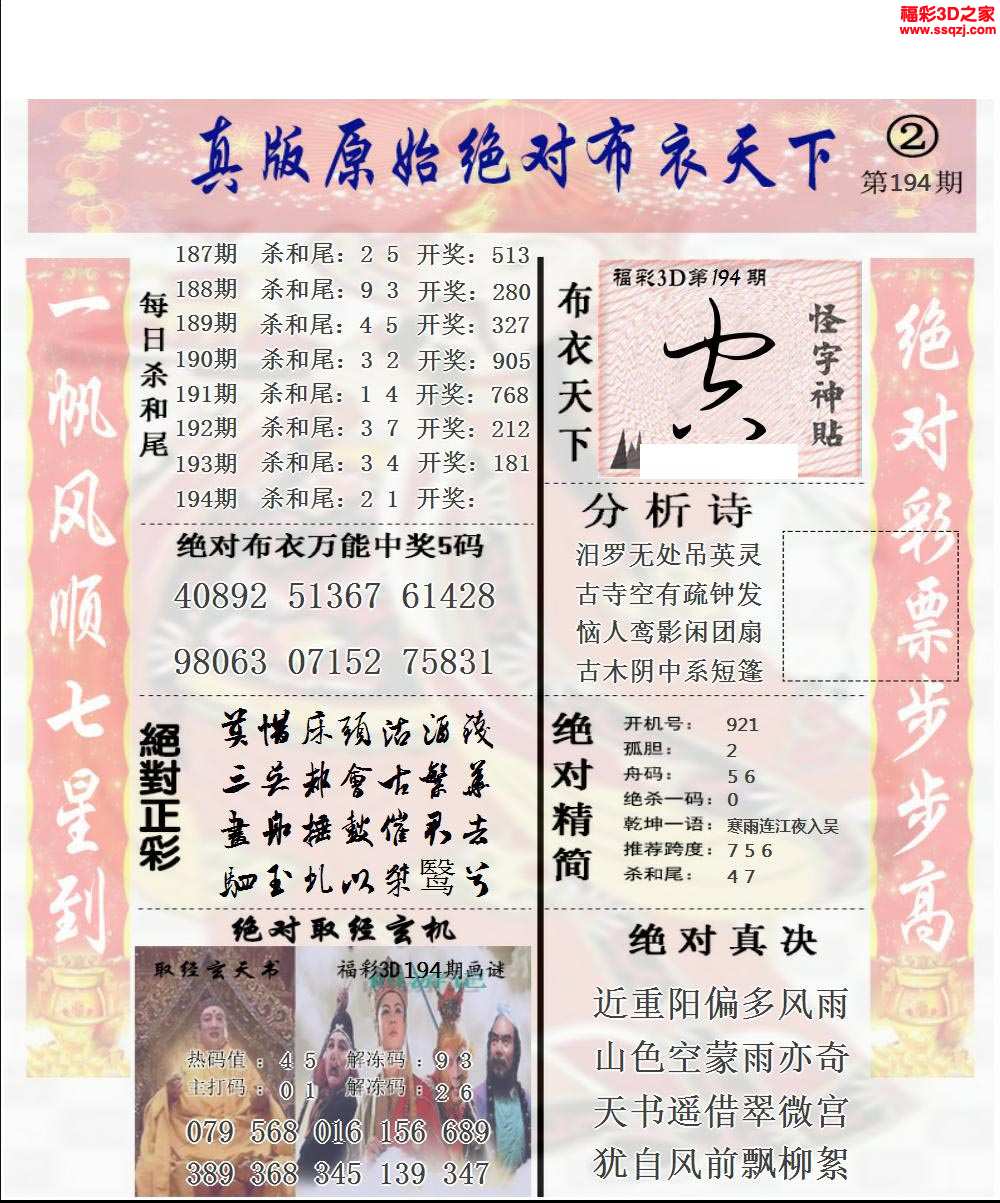 福彩3D之家
www.ssqzj.com
真版原始绝对布衣天下
②
第194期
一帆风顺七星到
每日杀和尾
187期 杀和尾：2 5 开奖：513
188期 杀和尾：9 3 开奖：280
189期 杀和尾：4 5 开奖：327
190期 杀和尾：3 2 开奖：905
191期 杀和尾：1 4 开奖：768
192期 杀和尾：3 7 开奖：212
193期 杀和尾：3 4 开奖：181
194期 杀和尾：2 1 开奖：
绝对布衣万能中奖5码
40892 51367 61428
98063 07152 75831
絕對正彩
莫惜床頭沽酒錢
三英都會古繁華
畫舟捶鼓催君去
駟玉虬以桀鹥兮
绝对取经玄机
取经玄天书
福彩3D194期画谜
热码值：4 5 解冻码：9 3
主打码：0 1 解冻码：2 6
079 568 016 156 689
389 368 345 139 347
布衣天下
福彩3D第194期
怪字神貼
分析诗
汨罗无处吊英灵
古寺空有疏钟发
恼人鸾影闲团扇
古木阴中系短篷
绝对精简
开机号： 921
孤胆： 2
舟码： 5 6
绝杀一码：0
乾坤一语：寒雨连江夜入吴
推荐跨度：7 5 6
杀和尾： 4 7
绝对真决
近重阳偏多风雨
山色空蒙雨亦奇
天书遥借翠微宫
犹自风前飘柳絮
绝对彩票步步高